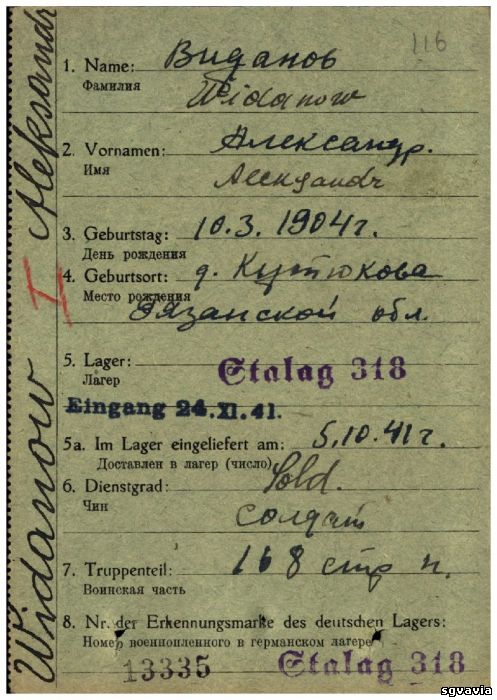 116
1. Name: Виданов
Фамилия Widanow
2. Vornamen: Александр.
Имя
3. Geburtstag: 10.3.1904 г.
День рождения
4. Geburtsort: д.
Место рождения Рязанской обл.
5. Lager: Stalag 318
Лагер
Eingang 24.XI.41.
5a. Im Lager eingeliefert am: 5.10.41 г.
Доставлен в лагер (число)
6. Dienstgrad: Sold.
Чин солдат
7. Truppenteil: 168 стр п.
Воинская часть
8. Nr. der Erkennungsmarke des deutschen Lagers:
Номер военнопленного в германском лагере
13335 Stalag 318
Widanow I Aleksandr
sgvavia